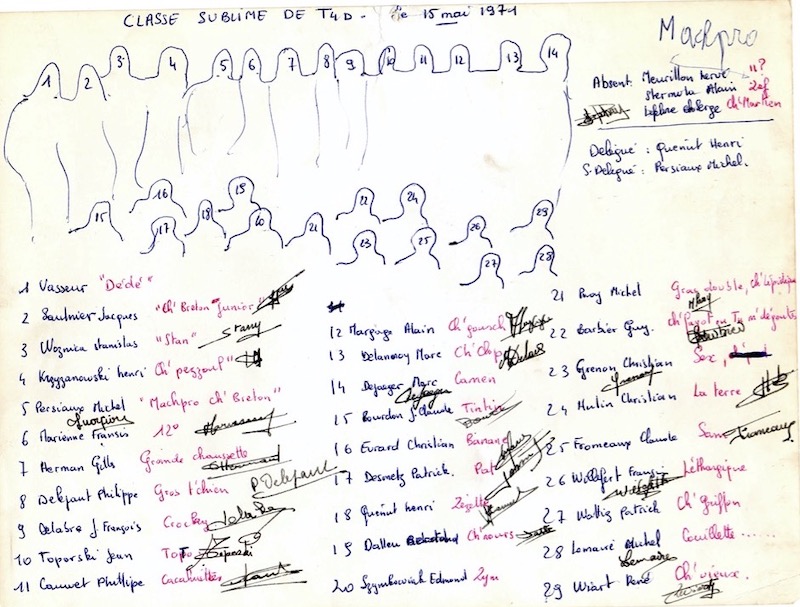 CLASSE SUBLIME DE T4D. Le 15 mai 1971
Machpro
1 2 3 4 5 6 7 8 9 10 11 12 13 14
Absent: Meurillon hervé 11?
Alain 2ef
Ch'Martien
Délégué: Quénut Henri
S. Délégué: Persiaux Michel.
15 16 17 18 19 20 21 22 23 24 25 26 27 28 29
1 Vasseur "Dédé"
2 Saulnier Jacques "Ch' Breton Junior"
3 Woznica stanislas "Stan"
4 Krzyzanowski henri Ch'
5 Persiaux Michel "Machpro ch' Breton"
6 Marienne Fransis 12°
7 Herman Gilles Grande chaussette
8 Deléfaut Philippe Gros tchien P. Delefaut
9 Delabre J François Crockey
10 Toporski Jean Topo
11 Cauwet Phillipe Cacahuitter
12 Alain Ch'
13 Delannoy Marc Ch'
14 Dejager Marc Camen
15 Bourdon J. Claude Tintin
16 Evrard Christian Banane
17 Desmetz Patrick. Pat
18 Quénut henri Zézette
19 Dalleu Ch'nours
20 Edmond Zym
21 Michel Gras double, ch'
22 Barbier Guy.
23 Grenon Christian Sex,
24 Hulin Christian La terre
25 Fromeaux Claude Sam
26 Willefert Fransis Léthargique
27 Wattig Patrick Ch' Griffon
28 Lemaire Michel Couillette......
Lemaire
29 Wiart René Ch' vieux.